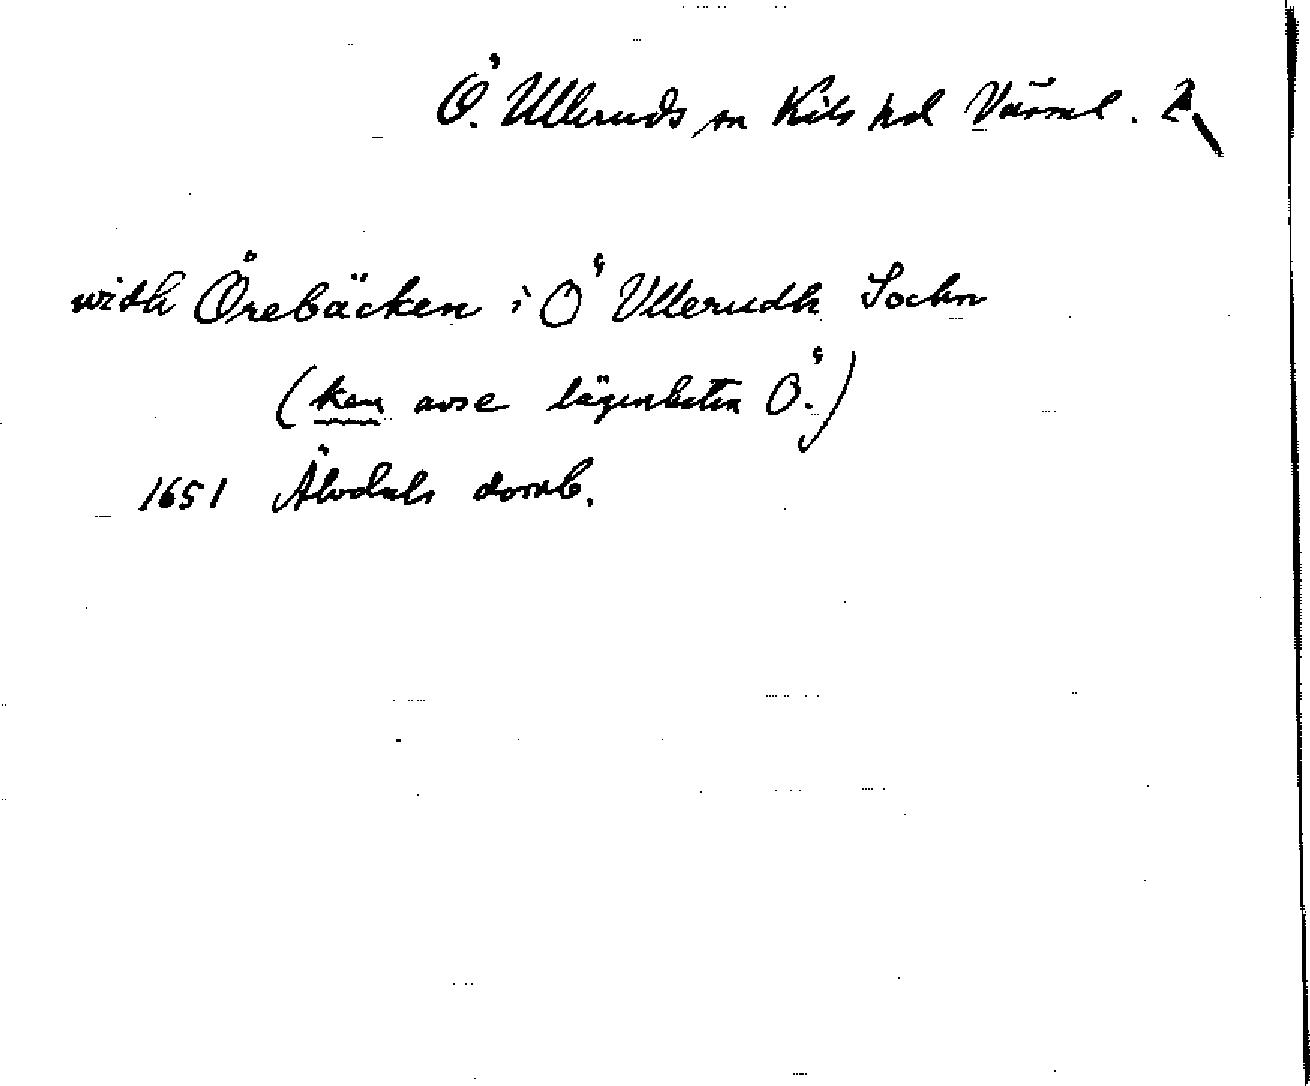 Ö. Ulleruds sn Kils hd Värml. 2
with Örebäcken i Ö Ullerudh Sochn
(kan avse lägenheten Ö.)
1651 Älvdals domb.